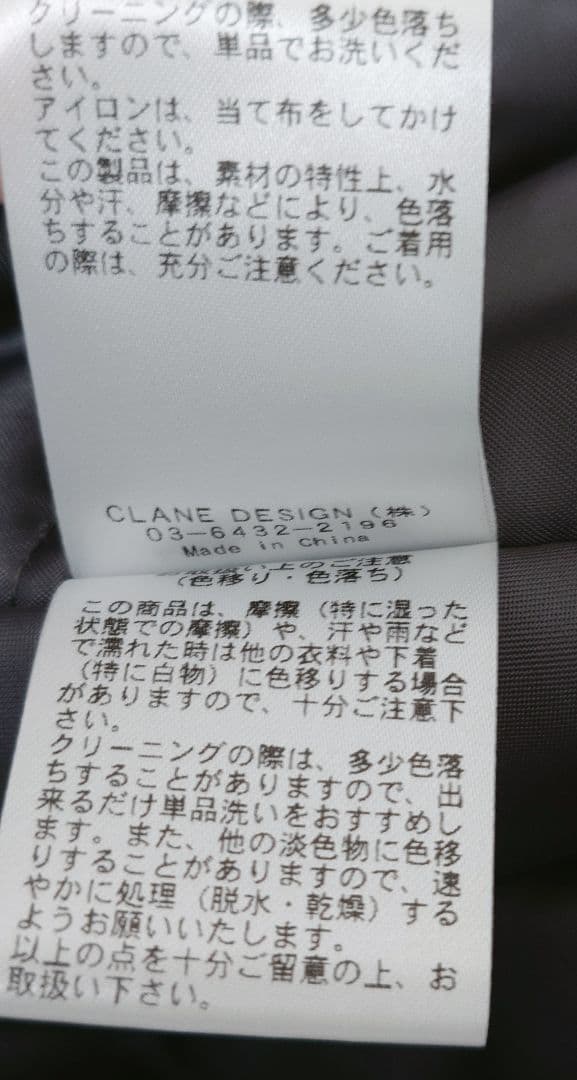 クリーニングの際、多少色落ち
しますので、単品でお洗いくだ
さい。
アイロンは、当て布をしてかけ
てください。
この製品は、素材の特性上、水
分や汗、摩擦などにより、色落
ちすることがあります。ご着用
の際は、充分ご注意ください。
CLANE DESIGN (株)
03-6432-2196
Made in China
取扱い上のご注意
(色移り・色落ち)
この商品は、摩擦(特に湿った
状態での摩擦)や、汗や雨など
で濡れた時は他の衣料や下着
(特に白物)に色移りする場合
がありますので、十分ご注意下
さい。
クリーニングの際は、多少色落
ちすることがありますので、出
来るだけ単品洗いをおすすめし
ます。また、他の淡色物に色移
りすることがありますので、速
やかに処理(脱水・乾燥)する
ようお願いいたします。
以上の点を十分ご留意の上、お
取扱い下さい。